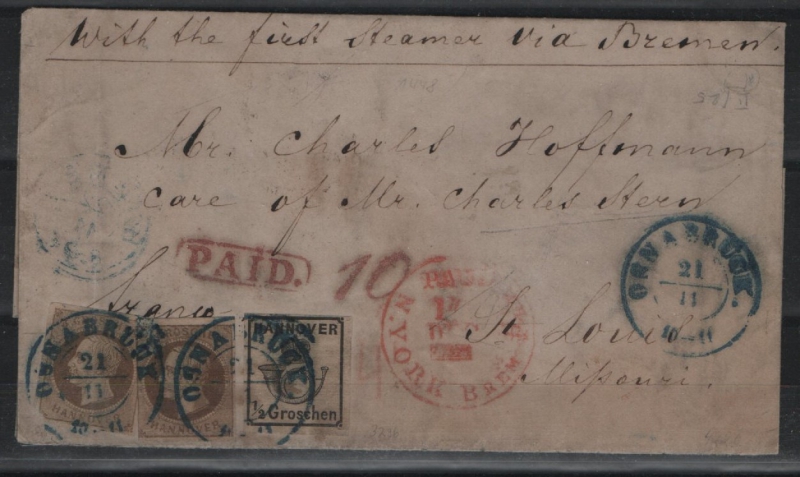 With the first Steamer via Bremen.
Mr. Charles Hoffmann
care of Mr. Charles Stern
PAID.
10
Franco
St. Louis
Missouri.
OSNABRÜCK.
21
11
10-11
N. YORK BREM
PAID
DEC
OSNABRÜCK
21
11
10-11
HANNOVER
OSNABRÜCK
HANNOVER
HANNOVER
1/2 Groschen